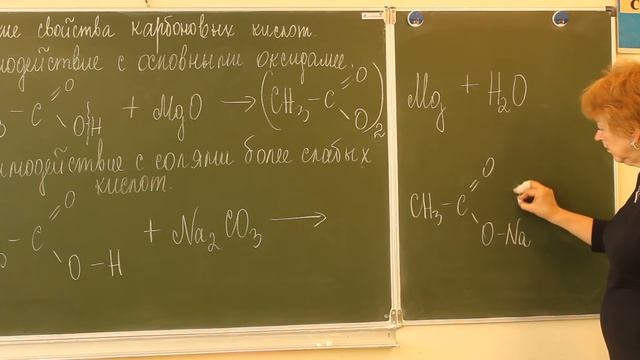 свойства карбоновых кислот.
с основными оксидами.
C O O H + MgO → (CH3–C O O)2 Mg + H2O
с солями более слабых
кислот.
C O O–H + Na2CO3 → CH3–C O O–Na